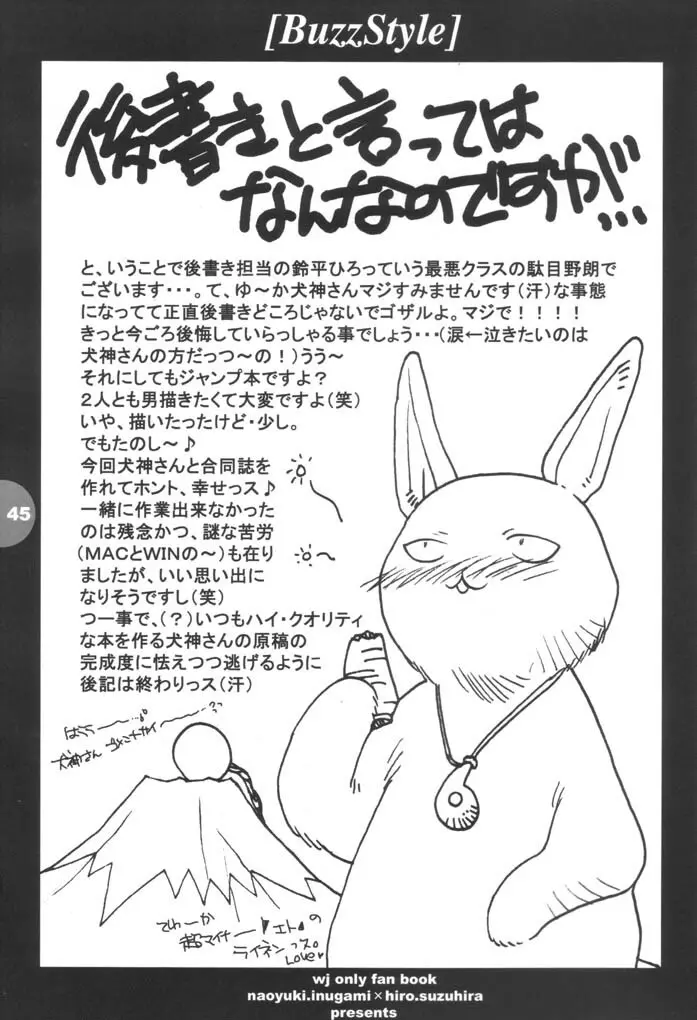 [BuzzStyle]
後書きと言っては
なんなのですが…
と、いうことで後書き担当の鈴平ひろっていう最悪クラスの駄目野朗で
ございます・・・。て、ゆ～か犬神さんマジすみませんです（汗）な事態
になってて正直後書きどころじゃないでゴザルよ。マジで！！！！
きっと今ごろ後悔していらっしゃる事でしょう・・・（涙←泣きたいのは
犬神さんの方だっつ～の！）うう～
それにしてもジャンプ本ですよ？
２人とも男描きたくて大変ですよ（笑）
いや、描いたったけど・少し。
でもたのし～♪
今回犬神さんと合同誌を
作れてホント、幸せっス♪
一緒に作業出来なかった
のは残念かつ、謎な苦労
（MACとWINの～）も在り
ましたが、いい思い出に
なりそうですし（笑）
つ一事で、（？）いつもハイ・クオリティ
な本を作る犬神さんの原稿の
完成度に怯えつつ逃げるように
後記は終わりっス（汗）
45
犬神さん ゴメンナサイ〜〜??
てゆーか
超マイナー
エトの
ライネンっス。
LOVE♥
wj only fan book
naoyuki.inugami×hiro.suzuhira
presents